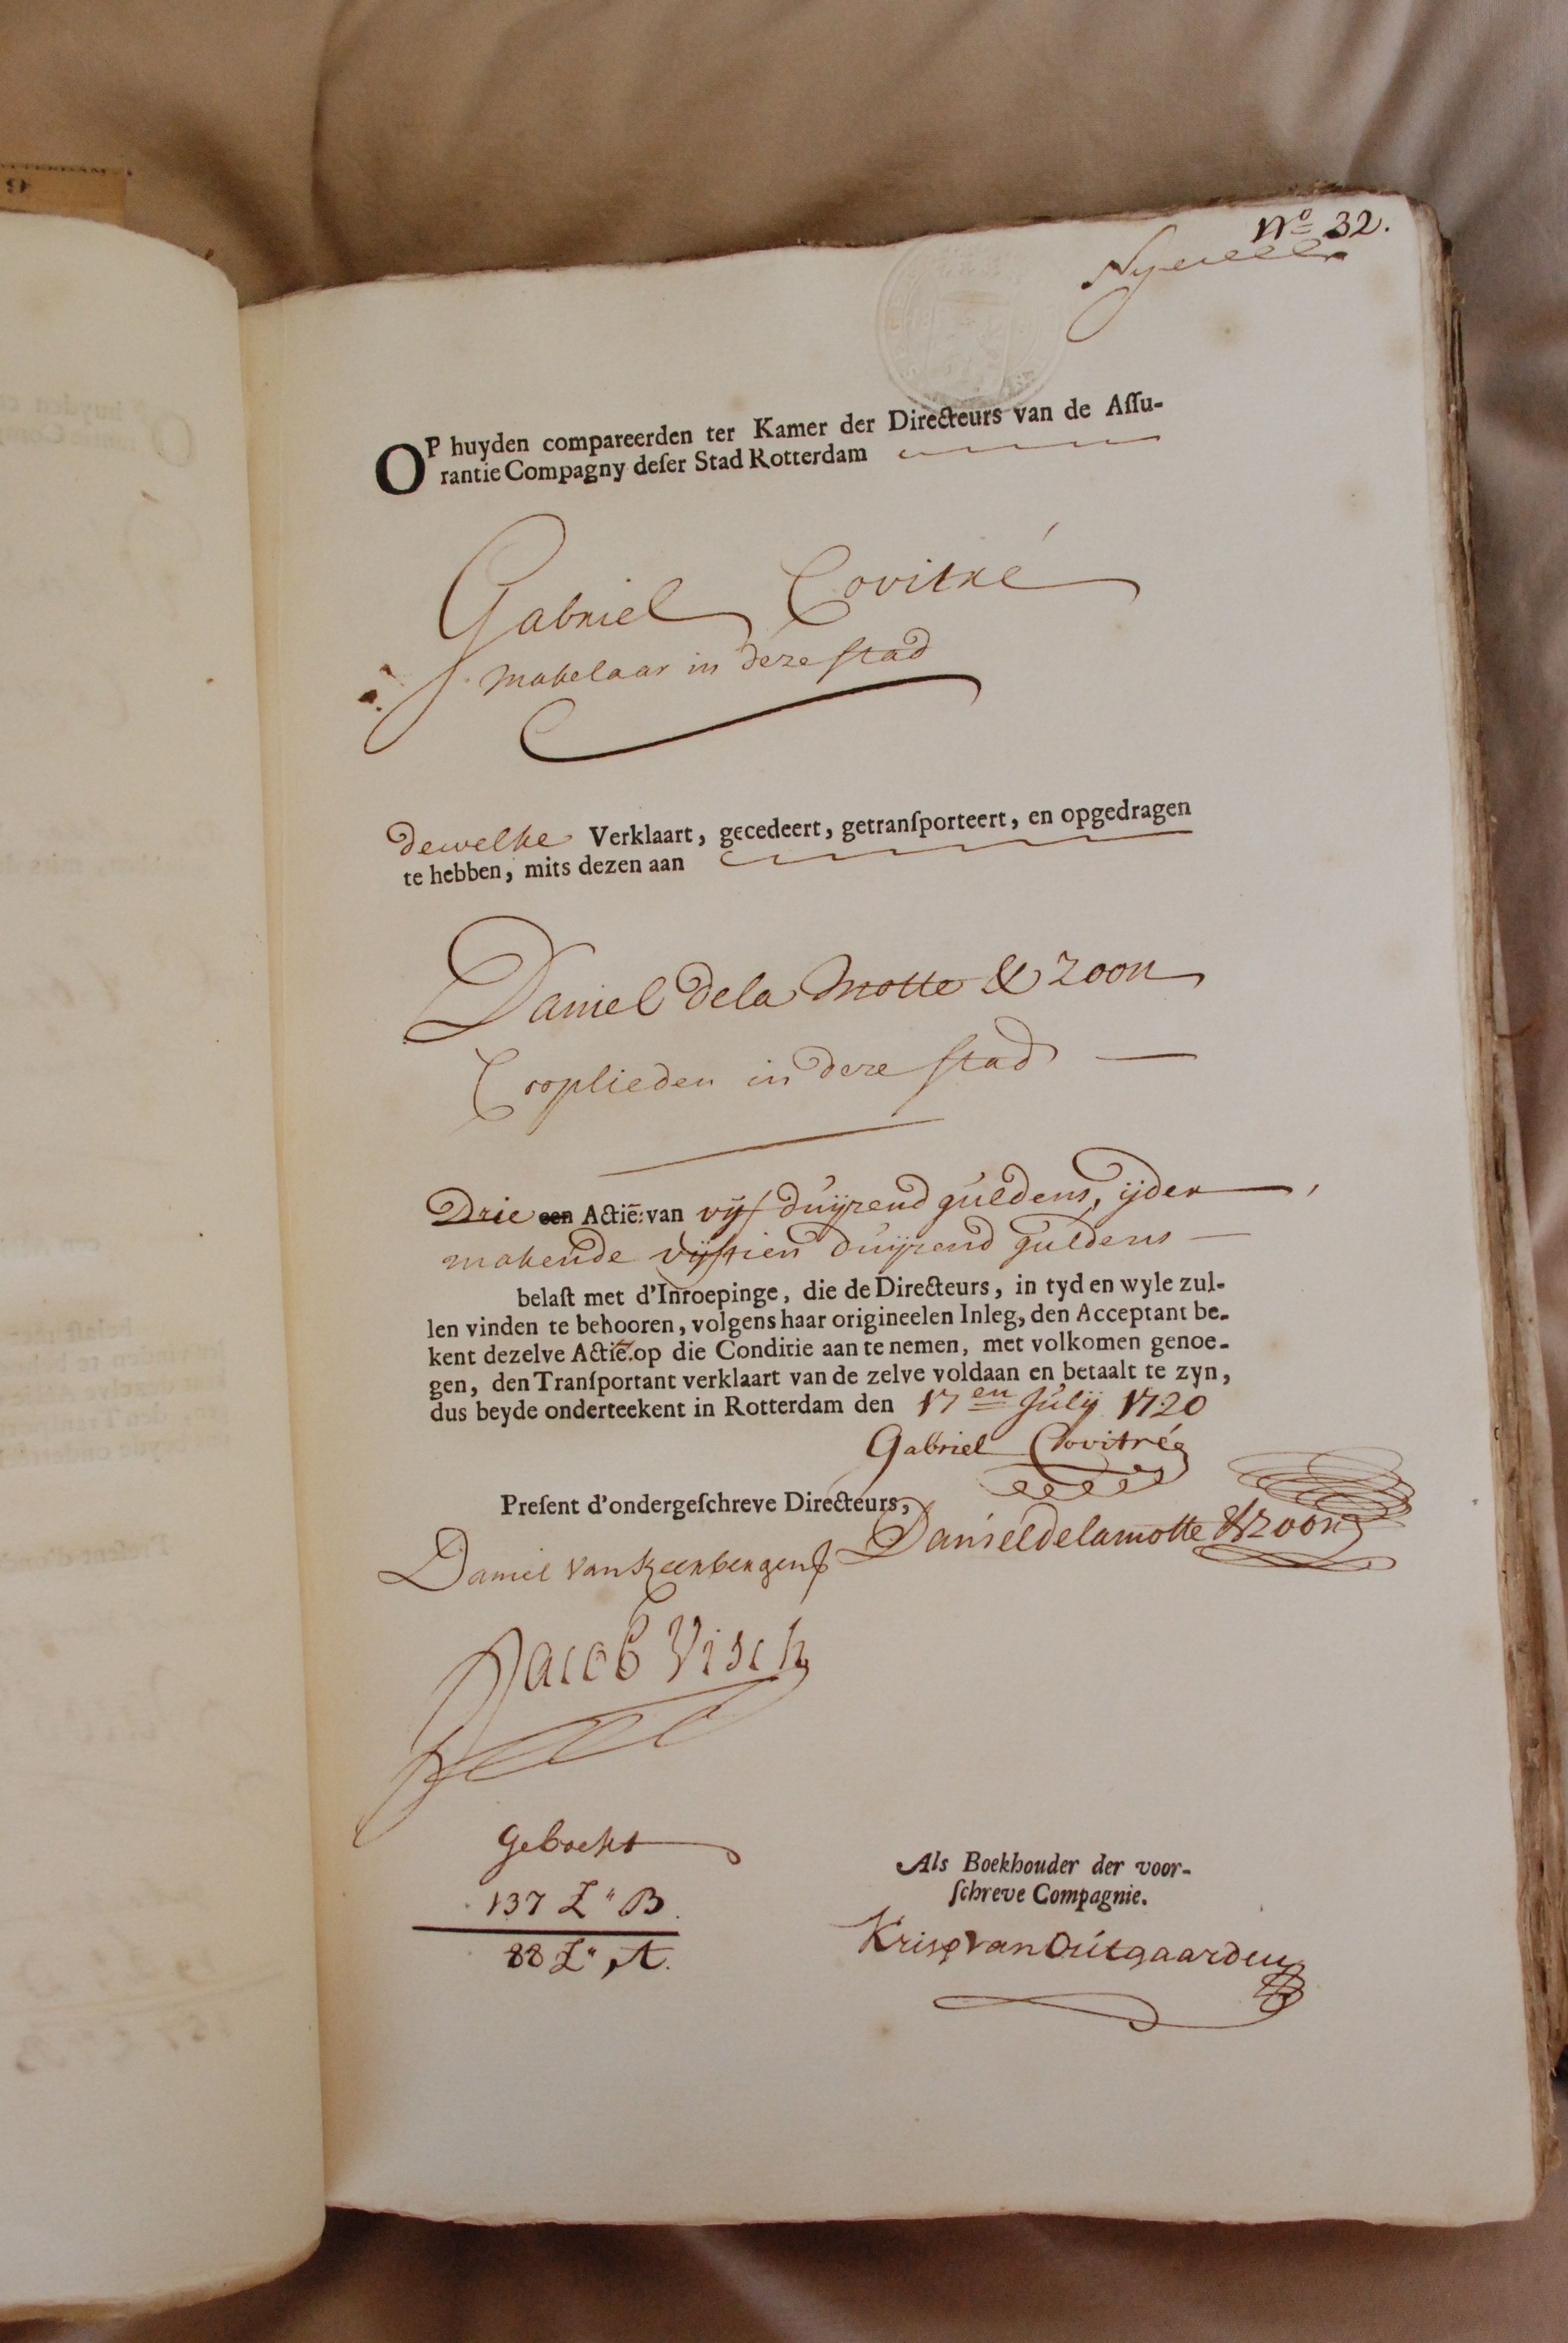 No 32.
OP huyden compareerden ter Kamer der Directeurs van de Aſſu-
rantie Compagny deſer Stad Rotterdam
Gabriel Covitré
makelaar in deze stad
dewelke Verklaart, gecedeert, getranſporteert, en opgedragen
te hebben, mits dezen aan
Daniel de la Motte & Zoon
Cooplieden in deze stad
Drie een Actiē: van vijf duijzend guldens, ijder
makende vijftien duijzend guldens
belaſt met d'Inroepinge, die de Directeurs, in tyd en wyle zul-
len vinden te behooren, volgens haar origineelen Inleg, den Acceptant be-
kent dezelve Actiē.op die Conditie aan te nemen, met volkomen genoe-
gen, den Tranſportant verklaart van de zelve voldaan en betaalt te zyn,
dus beyde onderteekent in Rotterdam den 17en Julij 1720
Gabriel Covitré
Preſent d'ondergeſchreve Directeurs,
Daniel de la motte & zoon
Daniel van Keerbergen
Jacob Visch
Geboekt
137 La B.
88 La A.
Als Boekhouder der voor-
ſchreve Compagnie.
Krisp van Outgaarden